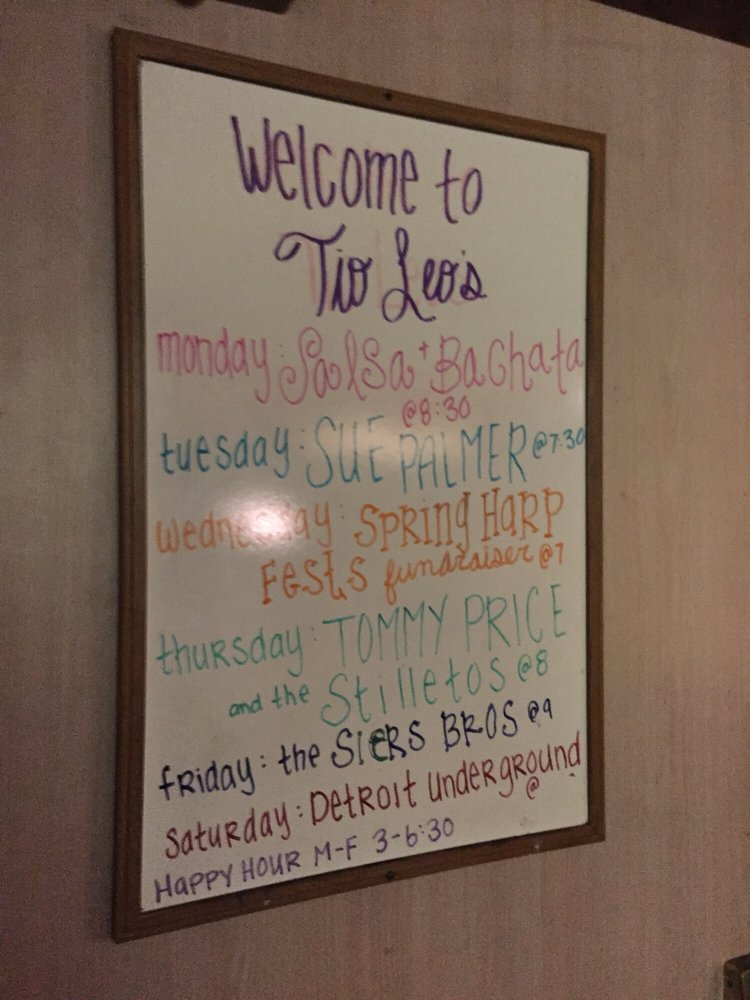 Welcome to
Tio Leo's
monday: Salsa + Bachata
@8:30
tuesday: SUE PALMER @7:30
wednesday: SPRING HARP
FESTS fundraiser @7
thursday: TOMMY PRICE
and the Stilletos @8
friday: the SIERS BROS @9
saturday: Detroit underground
@
HAPPY HOUR M-F 3-6:30